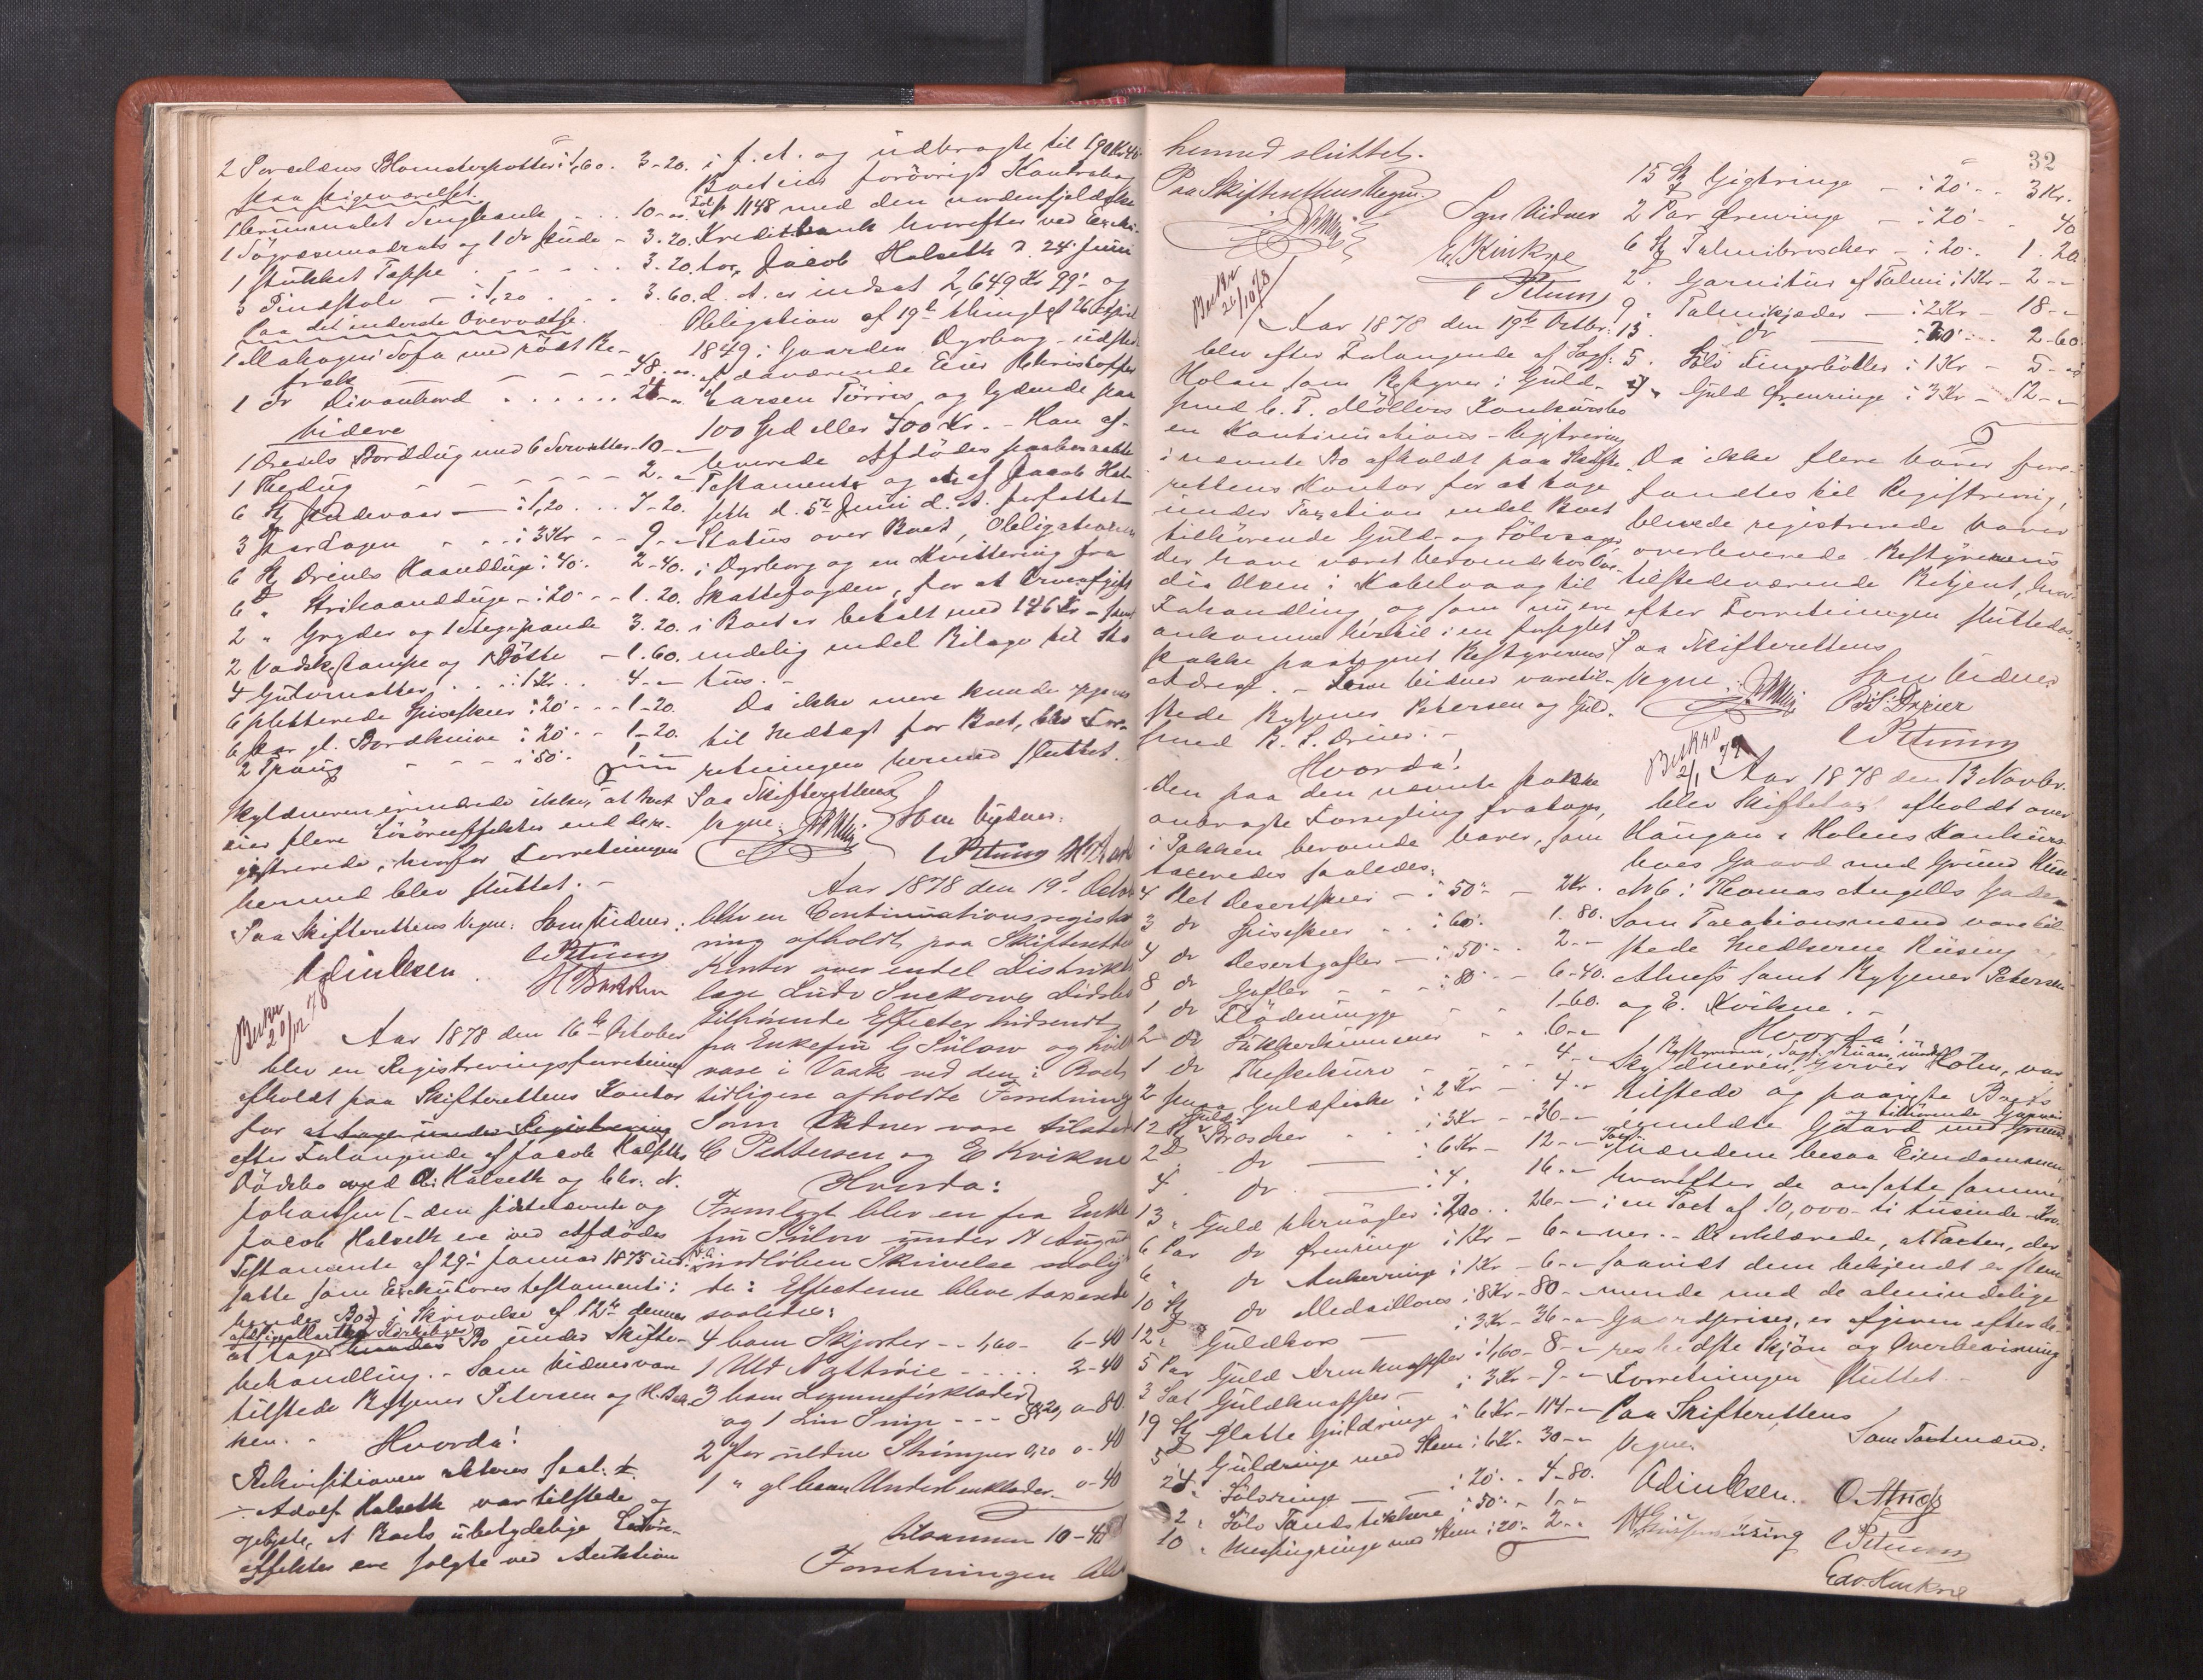 2 Porcelæns Blomsterpotter i 1,60. 3-20.
paa Pigeværelset
1 brunmalet Sengbænk - - 10-"
1 Søgræsmadrats og 1 do Pude - 3.20.
1 stukket Teppe - - - - 3.20.
3 Pindstole - i 1,20 - - 3.60.
Paa det inderste Overværelse.
1 Mahogni Sofa med rødt Be-
træk - - - - 48.
1 do Divanbord - - - - 24-"
Videre
1 Dreiels Borddug med 6 Servietter - 10 -
1 Thedug - - - - - 2-"
6 St Pudevaar - i 1,20 - - 7-20.
3 Par Lagen - - i 3 Kr - - 9-"
6 St Dreiels Haandduge i 40. 2-40.
6 " Strihaandduge - i 20 - - 1.20.
2 " Gryder og 1 Stegepande 3.20.
2 Vadske og 1 Bøtte - 1.60.
4 Gulvmatter - - i 1 Kr - - 4-"
6 pletterede Spiseskeer i 20 - - 1-20.
6 Par gl. Bordknive i 20 - - 1-20.
2 - - - i 50 - 1 -
Skyldneren erindrede ikke, at Boet
eier flere Løsøreeffekter end de re-
gistrerede, hvorfor Forretningen
hermed blev sluttet. -
Paa Skifterettens Vegne: Som Vidner:
Odin Olsen. Petersen
H Bakken
20/12 78
Aar 1878 den 16de October
blev en Registreringsforretning
afholdt paa Skifterettens Kontor
for at tage under Registrering
efter Forlangende af Jacob Halseths
Dødsbo ved A. Halseth og Chr. A.
Johansen (- den sidstnævnte og
Jacob Halseth ere ved Afdødes
Testamente af 29. Januar 1875 ind-
satte som Exekutores testamenti i
hendes Bo) i Skrivelse af 12te dennes
at tage hendes Bo under Skifte-
behandling. - Som Vidner vare
tilstede Betjener Petersen og H. Bak-
ken. - Hvorda!
Rekvisitionen akteres saal. t.
- Adolf Halseth var tilstede og
oplyste, at Boets ubetydelige Løsøre-
effekter ere solgte ved Auktion
i f. A. og udbragte til 190 Kr 46
Boet eier forøvrigt Kontrabog
No 1148 med den nordenfjeldske
Kreditbank hvorefter ved Exeku-
tor Jacob Halseth d. 24. Juni
d. A. er indsat 2,649 Kr 99. og
Obligation af 19de thinglæst 26 April
1849 i Gaarden Dyrborg - udstedt
af daværende Eier Christoffer
Larsen Tørris og lydende paa
100 Spd eller 400 Kr. - Han af-
leverede Afdødes paaberaabte
Testamente og et af Jacob Hal-
seth d. 5te Juni d. A. forfattet
Status over Boet, Obligationen
i Dyrborg og en Kvittering fra
Skattefogden, for at Arveafgift
i Boet er betalt med 146 Kr - samt
endelig endel Bilage til Sta-
tus. -
Da ikke mere kunde opgives
til Indtægt for Boet, blev For-
retningen hermed sluttet.
Paa Skifterettens
Vegne: Som Vidner:
Petersen
Aar 1878 den 19d Octob
blev en Continuationsregistre-
ring afholdt paa Skifterettens
Kontor over endel Distrikts-
læge Ludv Dødsbo
tilhørende Effecter hidsendt
fra Enkefru G Sülow og hvilke
vare i Vask ved den i Boet
tidligere afholdte Forretning
Som Vidner vare tilstede
C Pettersen og E Kvikne
Hvorda:
Fremlagt blev en fra Enke
fru Sülow under 14 August
indløben Skrivelse saaly-
de: Effecterne bleve taxerede
saaledes:
4 bom Skjorter - - 1,60 - 6-40
1 Uld Nattrøie - - - - 2-40
3 bom Lommetørklæder
og 1 Lin - - - 0,20, 0-80.
2 Par uldne Strømper 0,20 0-40
1 " gl bom Underbenklæder. 0-40
Tilsammen 10-40
Forretningen blev
32
hermed sluttet.
Paa Skifterettens Vegne.
Som Vidner
E. Kvikne
Petersen
26/10 78
Aar 1878 den 19de Octbr.
blev efter Forlangende af Sagf.
Holan som Bestyrer i Guld-
smed C. F. Møllers Konkursbo
en Kontinuations-Registrering
i nævnte Bo afholdt paa Skifte-
rettens Kontor for at tage
under Taxation endel Boet
tilhørende Guld- og Sølvsager,
der have været beroende hos Ova-
dia Olsen i Kabelvaag til
Forhandling og som nu ere
ankomne hertil i en forseglet
pakke paategnet Bestyrerens
Adresse. - Som Vidner vare til-
stede Betjener Petersen og Guld-
smed B. S. Drejer. -
Hvorda!
Den paa den nævnte pakke
anbragte Forsegling fratoges,
i Pakken beroende Varer, som
taxeredes saaledes:
4 Stk Desertskeer - i 50 - 2 Kr.
3 do Spiseskeer - - i 60. 1.80.
4 do Desertgafler - i 50 - - 2 - -
8 do Gafler - - - i 80 - - 6-40.
1 do Flødemugge - - 1-60.
2 do Sukkerkummer - - 6-"
1 do Theskekurv - - - 4-"
2 smaa Guldfiske i 2 Kr - 4-"
12 St Guld Brosker - - i 3 Kr - 36-"
2 D do - i 6 Kr - 12-"
4. do - i 4. 16-"
13 " Guld i 2,00 - - 26-"
6 Par do Ørenringe i 1 Kr - 6-"
6 " do Ankerringe i 1 Kr - 6-"
10 St do Medaillons i 8 Kr - 80-"
12 " Guldkors - i 3 Kr - 36-"
5 Par Guld Armknapper i 1,60 - 8-"
3 Sæt Guldknapper - i 3 Kr - 9-"
19 St glatte Guldringe i 6 Kr - 114-"
5 " Guldringe med Sten i 6 Kr - 30-"
24 " Sølvringe - i 20 - - 4-80.
2 " Sølv Tandstikkere i 50 - 1-"
10 " Messingringe med Sten i 20 - 2-"
15 St Gigtringe - i 20 - - 3 Kr.
2 Par Ørenringe - i 20 - 40
6 St Talmibroscher - i 20. 1.20
2 " Garnitur af Talmi i 1 Kr - 2 - -
9. Talmikjæder - i 2 Kr - 18 - -
13. do - i 20 - - 2-60.
5. Sølv Fingerbøller i 1 Kr - 5-"
4 " Guld Ørenringe i 3 Kr - 12-"
Da ikke flere Varer fore-
fandtes til Registrering,
blevede registrerede Varer
overleverede Bestyrerens
tilstedeværende Betjent, hvor-
efter Forretningen sluttedes.
Paa Skifterettens
Vegne. Som Vidner
B. S. Drejer
Petersen
2/1 79
Aar 1878 den 13 Novbr.
blev Skiftetaxt afholdt over
Haugan & Holens Konkurs-
boes Gaard med Grund
No 6 i Thomas Angells Gade
Som Taxationsmænd vare til-
stede Snedkerne Riising
Alness samt Betjener Petersen
og E. Kvikne. -
Hvorda!
Skyldneren, Iver Holen, var
tilstede og paaviste Boets
og tilhørende
ommeldte Gaard med Grund
Mændene besaa Eiendommen,
hvorefter de ansatte samme
i en Taxt af 10,000 - ti tusinde Kro-
ner. - De erklærede, at Taxten, der
saavidt dem bekjendt er stem-
mende med de almindelige
Gaardspriser, er afgiven efter de-
res bedste Skjøn og Overbevisning
Forretningen sluttet. -
Paa Skifterettens
Vegne: Som Taxtmænd:
Odin Olsen. O. Alness
Petersen
Edv. Kvikne